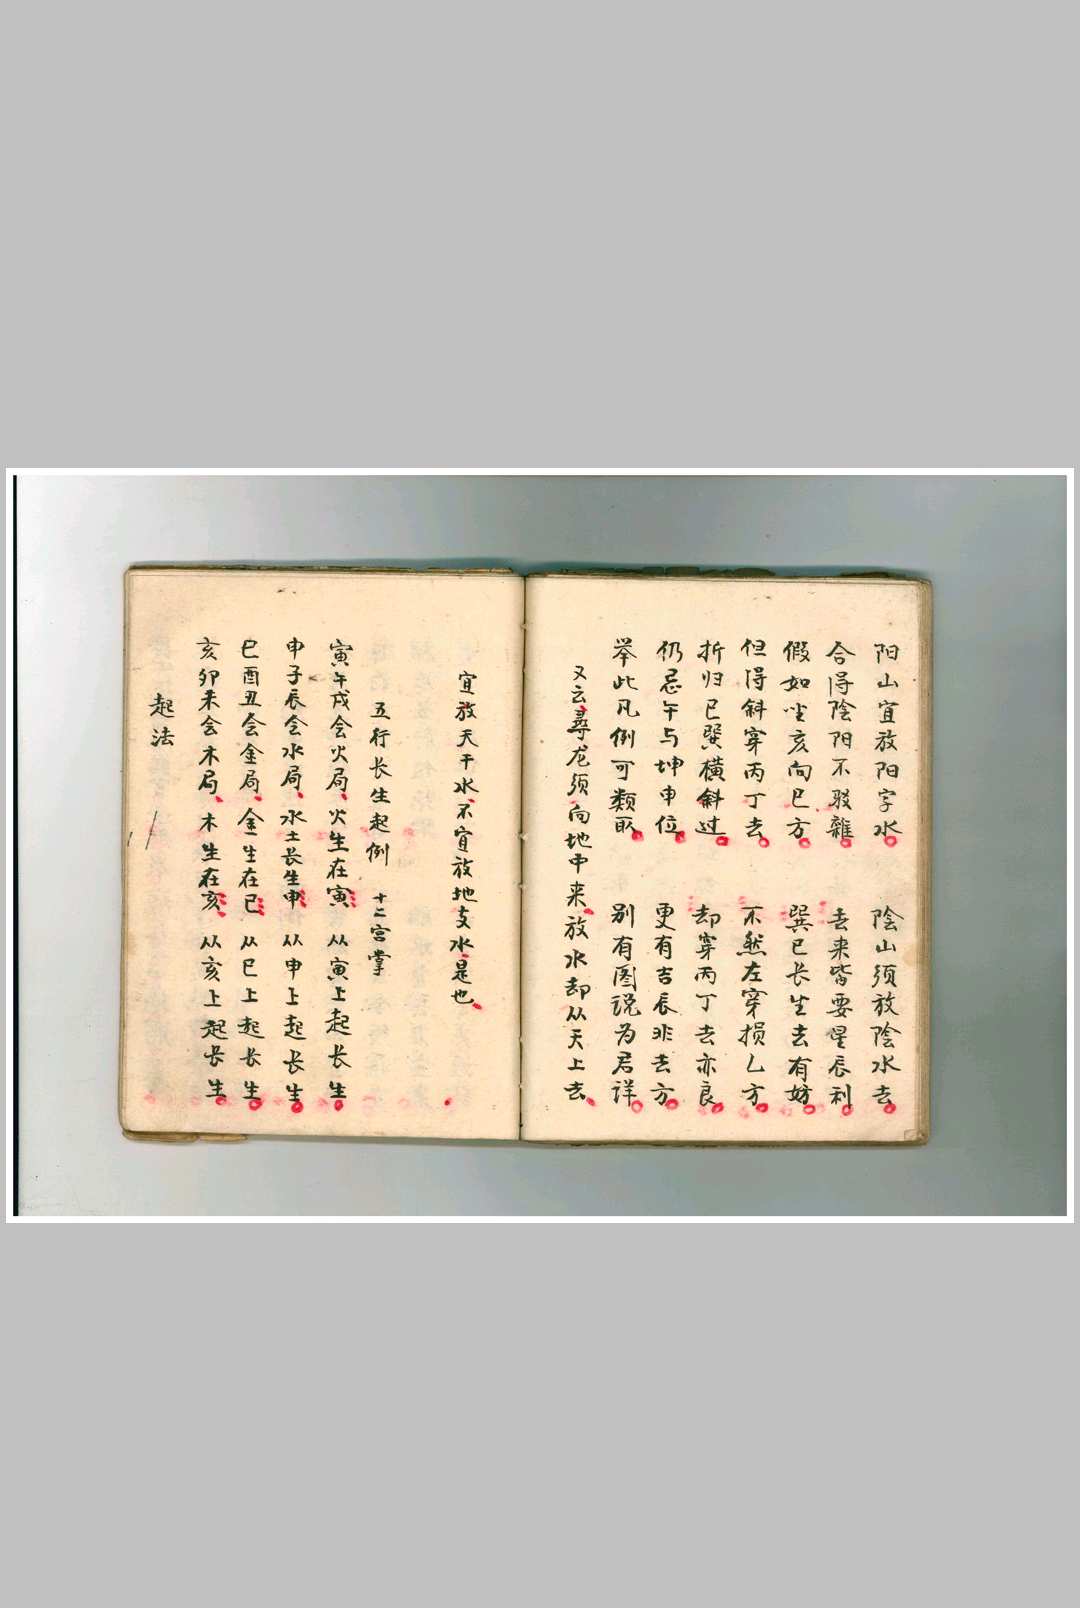 阳山宜放阳字水 陰山须放陰水去
合得陰阳不驳雜 去来皆要星辰利
假如坐亥向巳方 巽巳长生去有妨
但得斜穿丙丁去 不然左穿损乙方
折归巳巽横斜过 却穿丙丁去亦良
仍忌午与坤申位 更有吉辰非去方
举此凡例可类取 别有图说为君详
又云尋龙须向地中来放水却从天上去
宜放天干水不宜放地支水是也
五行长生起例 十二宫掌
寅午戌会火局火生在寅从寅上起长生
申子辰会水局水土长生申从申上起长生
巳酉丑会金局金生在巳从巳上起长生
亥卯未会木局木生在亥从亥上起长生
起法